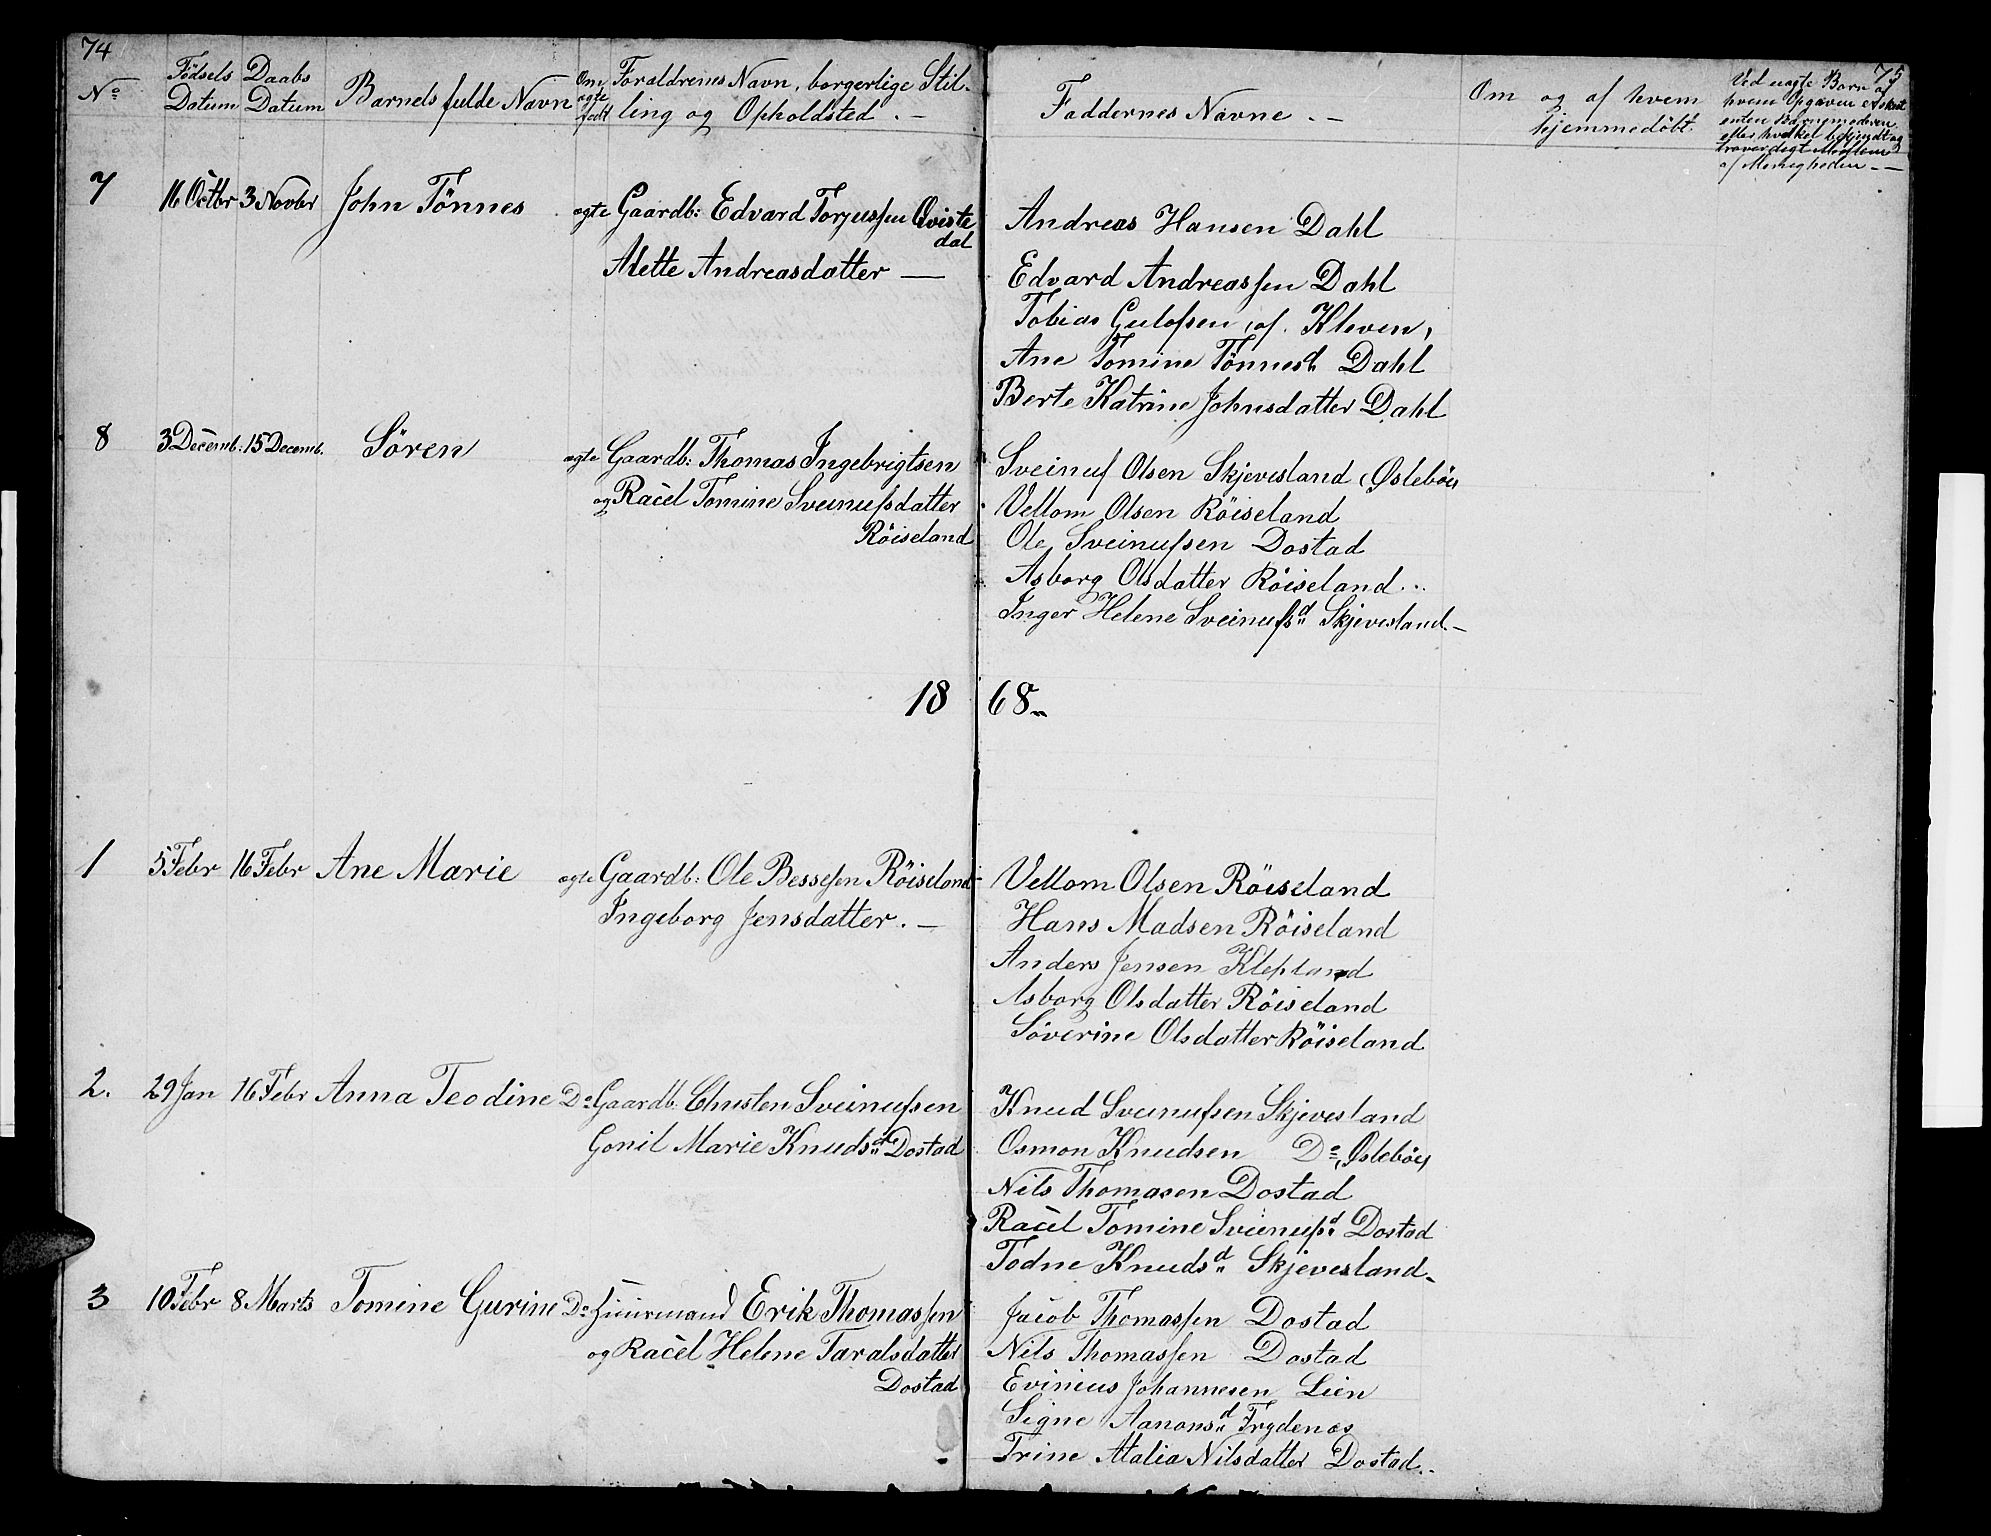 74
75
No
Fødsels Datum
Daabs Datum
Barnets fulde Navn
Om ægte født
Forældrenes Navn, borgerlige Stil-
ling og Opholdsted. -
Faddernes Navne. -
Om og af hvem
hjemmedøbt.
Ved uægte Børn af
hvem Opgaven er skeet
enten Barnemoderen
eller hvilket bekjendt og
troverdigt Medlem
af Menigheden. -
7 16 Octbr 3 Novbr John Tönnes ægte Gaardb: Edvard Torjussen Qviste
dal
Alette Andreasdatter —
Andreas Hansen Dahl
Edvard Andreassen Dahl
Tobias Gulofsen, af. Kleven,
Ane Tomine Tönnesd Dahl
Berte Katrine Johnsdatter Dahl
8 3 Decemb: 15 Decemb. Sören ægte Gaardb: Thomas Ingebrigtsen
og Racel Tomine Sveinufsdatter
Röiseland
Sveinuf Olsen Skjevesland, Øsleböu
Vellom Olsen Röiseland
Ole Sveinufsen Dostad
Asborg Olsdatter Röiseland..
Inger Helene Sveinufsd Skjevesland.-
1868
1 5 Febr 16 Febr Ane Marie ægte Gaardb: Ole Bessesen Röiseland
Ingeborg Jensdatter. —
Vellom Olsen Röiseland
Hans Madsen Röiseland
Anders Jensen Klepland
Asborg Olsdatter Röiseland
Söverine Olsdatter Röiseland
2. 29 Jan 16 Febr Anna Teodine Do Gaardb. Christen Sveinufsen
Gonil Marie Knudsd Dostad
Knud Sveinufsen Skjevesland
Osmon Knudsen Do, Øsleböu
Nils Thomasen Dostad
Racel Tomine Sveinufsd Dostad
Todne Knudsd Skjevesland.
3 10 Febr 8 Marts Tomine Gurine Do Huusmand Erik Thomassen
og Racel Helene Taralsdatter
Dostad
Jacob Thomassen Dostad
Nils Thomassen Dostad
Evinius Johannesen Lien
Signe Aanonsd Frydenæs
Trine Atalia Nilsdatter Dostad..